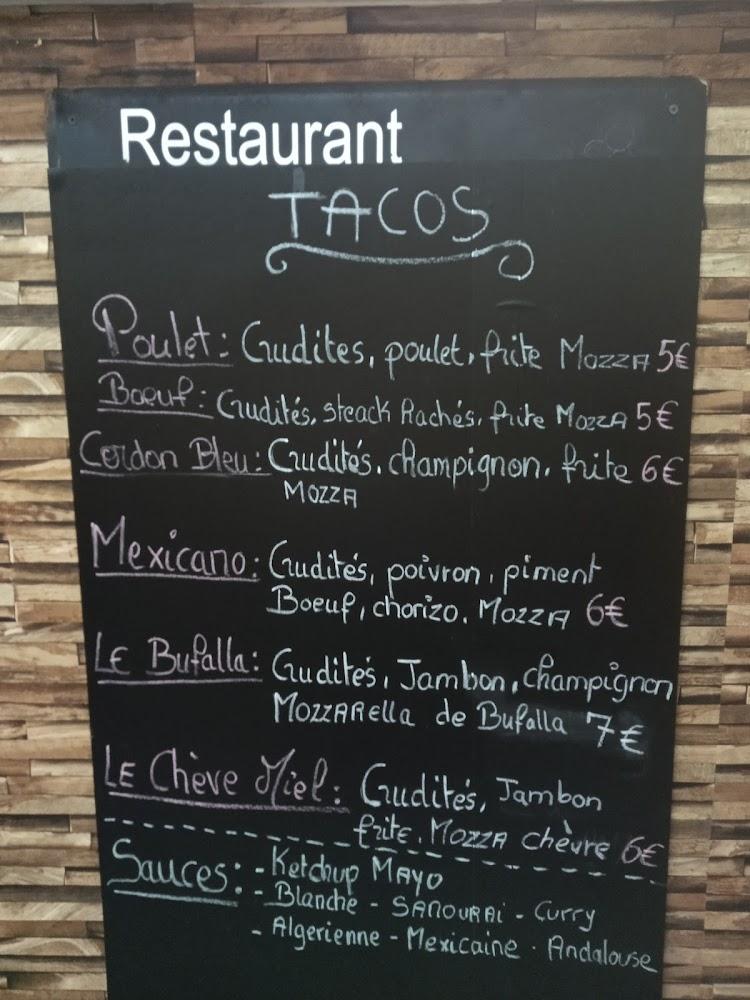 Restaurant
TACOS
Poulet: Crudites, poulet, frite Mozza 5€
Boeuf: Crudités, steack Rachés, frite Mozza 5€
Cordon Bleu: Crudités, champignon, frite 6€
Mozza
Mexicano: Crudités, poivron, piment
Boeuf, chorizo, Mozza 6€
Le Bufalla: Crudités, Jambon, champignon
Mozzarella de Bufalla 7€
Le Chève Miel: Crudités, Jambon
frite, Mozza chèvre 6€
Sauces: - Ketchup Mayo
- Blanche - SAMOURAi - Curry
- Algerienne - Mexicaine - Andalouse